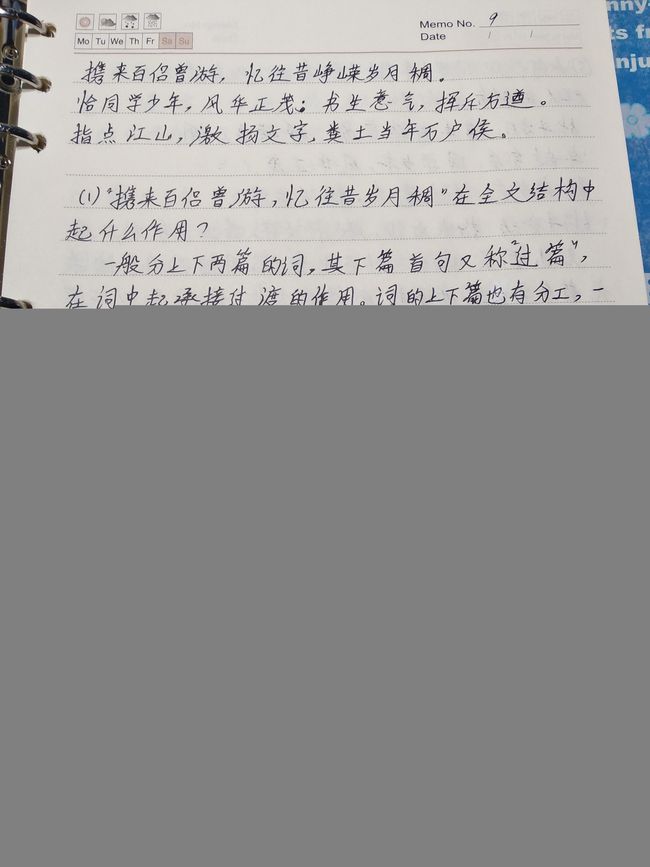 Memo No. 9
Mo Tu We Th Fr Sa Su
Date / /
nny
ts fr
nju
携来百侣曾游，忆往昔峥嵘岁月稠。
恰同学少年，风华正茂；书生意气，挥斥方遒。
指点江山，激扬文字，粪土当年万户侯。
(1)"携来百侣曾游，忆往昔岁月稠"在全文结构中
起什么作用？
一般分上下两篇的词，其下篇首句又称"过篇"，
在词中起承接过渡的作用。词的上下篇也有分工，一